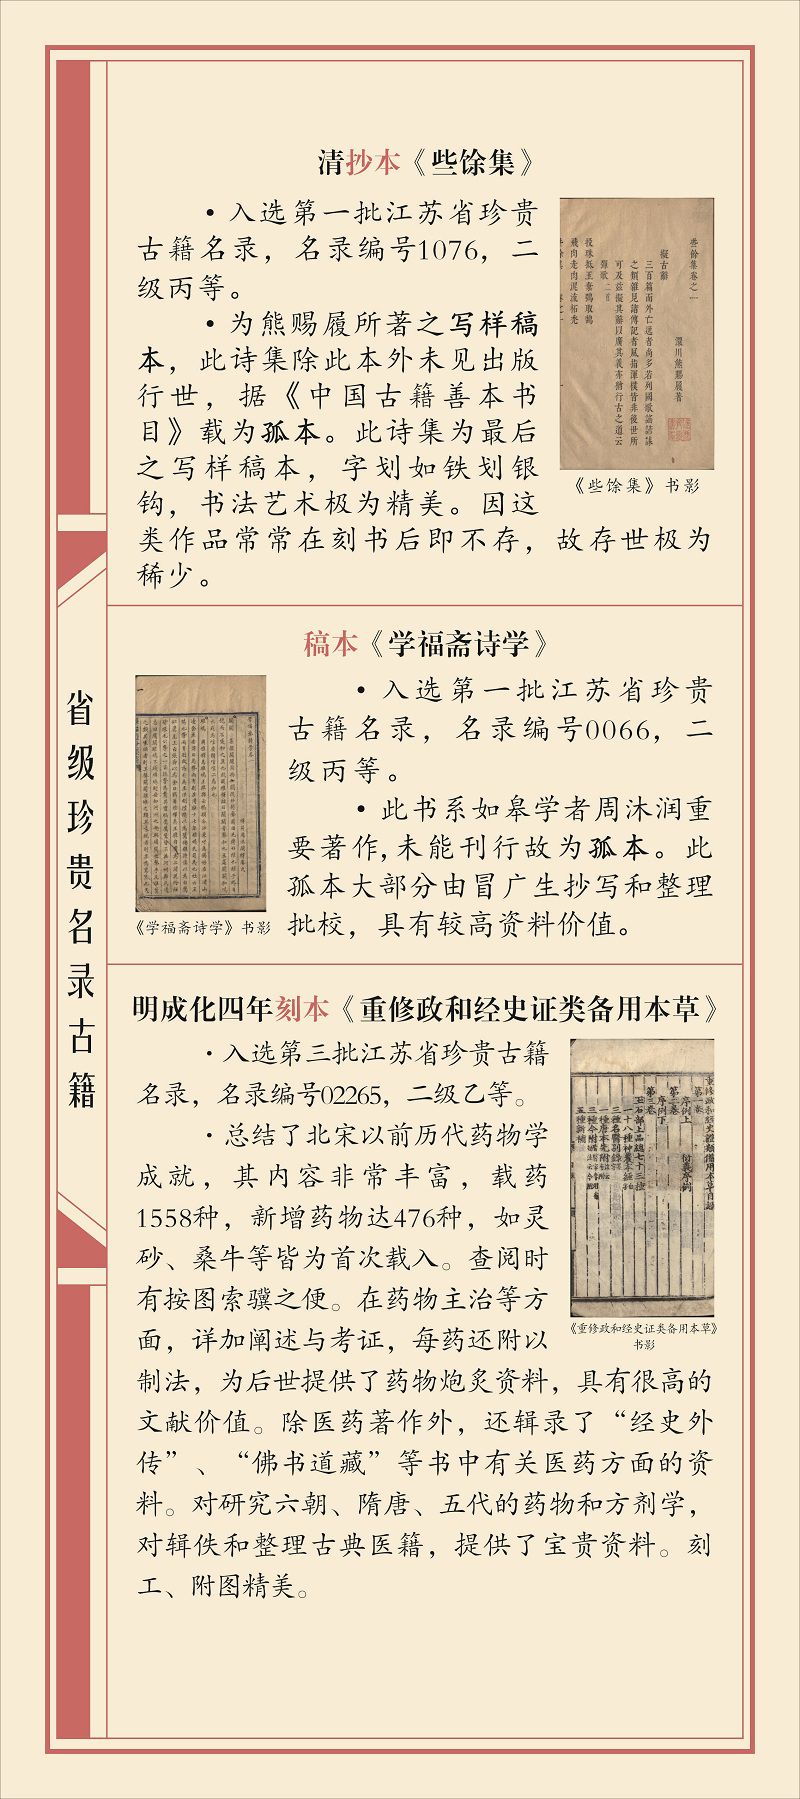 省级珍贵名录古籍
清抄本《些馀集》
·入选第一批江苏省珍贵
古籍名录，名录编号1076，二
级丙等。
·为熊赐履所著之写样稿
本，此诗集除此本外未见出版
行世，据《中国古籍善本书
目》载为孤本。此诗集为最后
之写样稿本，字划如铁划银
钩，书法艺术极为精美。因这
类作品常常在刻书后即不存，故存世极为
稀少。
些馀集卷之一
澴川熊賜履著
擬古辭
三百篇而外亡逸者尚多若列國歌謡諺誄
之類雜見諸傳記者風指渾樸皆非後世所
可及兹擬其辭以廣其義亦猶行古之道云
《些馀集》书影
稿本《学福斋诗学》
·入选第一批江苏省珍贵
古籍名录，名录编号0066，二
级丙等。
·此书系如皋学者周沐润重
要著作,未能刊行故为孤本。此
孤本大部分由冒广生抄写和整理
批校，具有较高资料价值。
《学福斋诗学》书影
明成化四年刻本《重修政和经史证类备用本草》
·入选第三批江苏省珍贵古籍
名录，名录编号02265，二级乙等。
·总结了北宋以前历代药物学
成就，其内容非常丰富，载药
1558种，新增药物达476种，如灵
砂、桑牛等皆为首次载入。查阅时
有按图索骥之便。在药物主治等方
面，详加阐述与考证，每药还附以
制法，为后世提供了药物炮炙资料，具有很高的
文献价值。除医药著作外，还辑录了“经史外
传”、“佛书道藏”等书中有关医药方面的资
料。对研究六朝、隋唐、五代的药物和方剂学，
对辑佚和整理古典医籍，提供了宝贵资料。刻
工、附图精美。
重修政和經史證類備用本草目録
第一卷
序例上
衍義序例
第二卷
序例下
第三卷
玉石部上品總七十三種
《重修政和经史证类备用本草》
书影